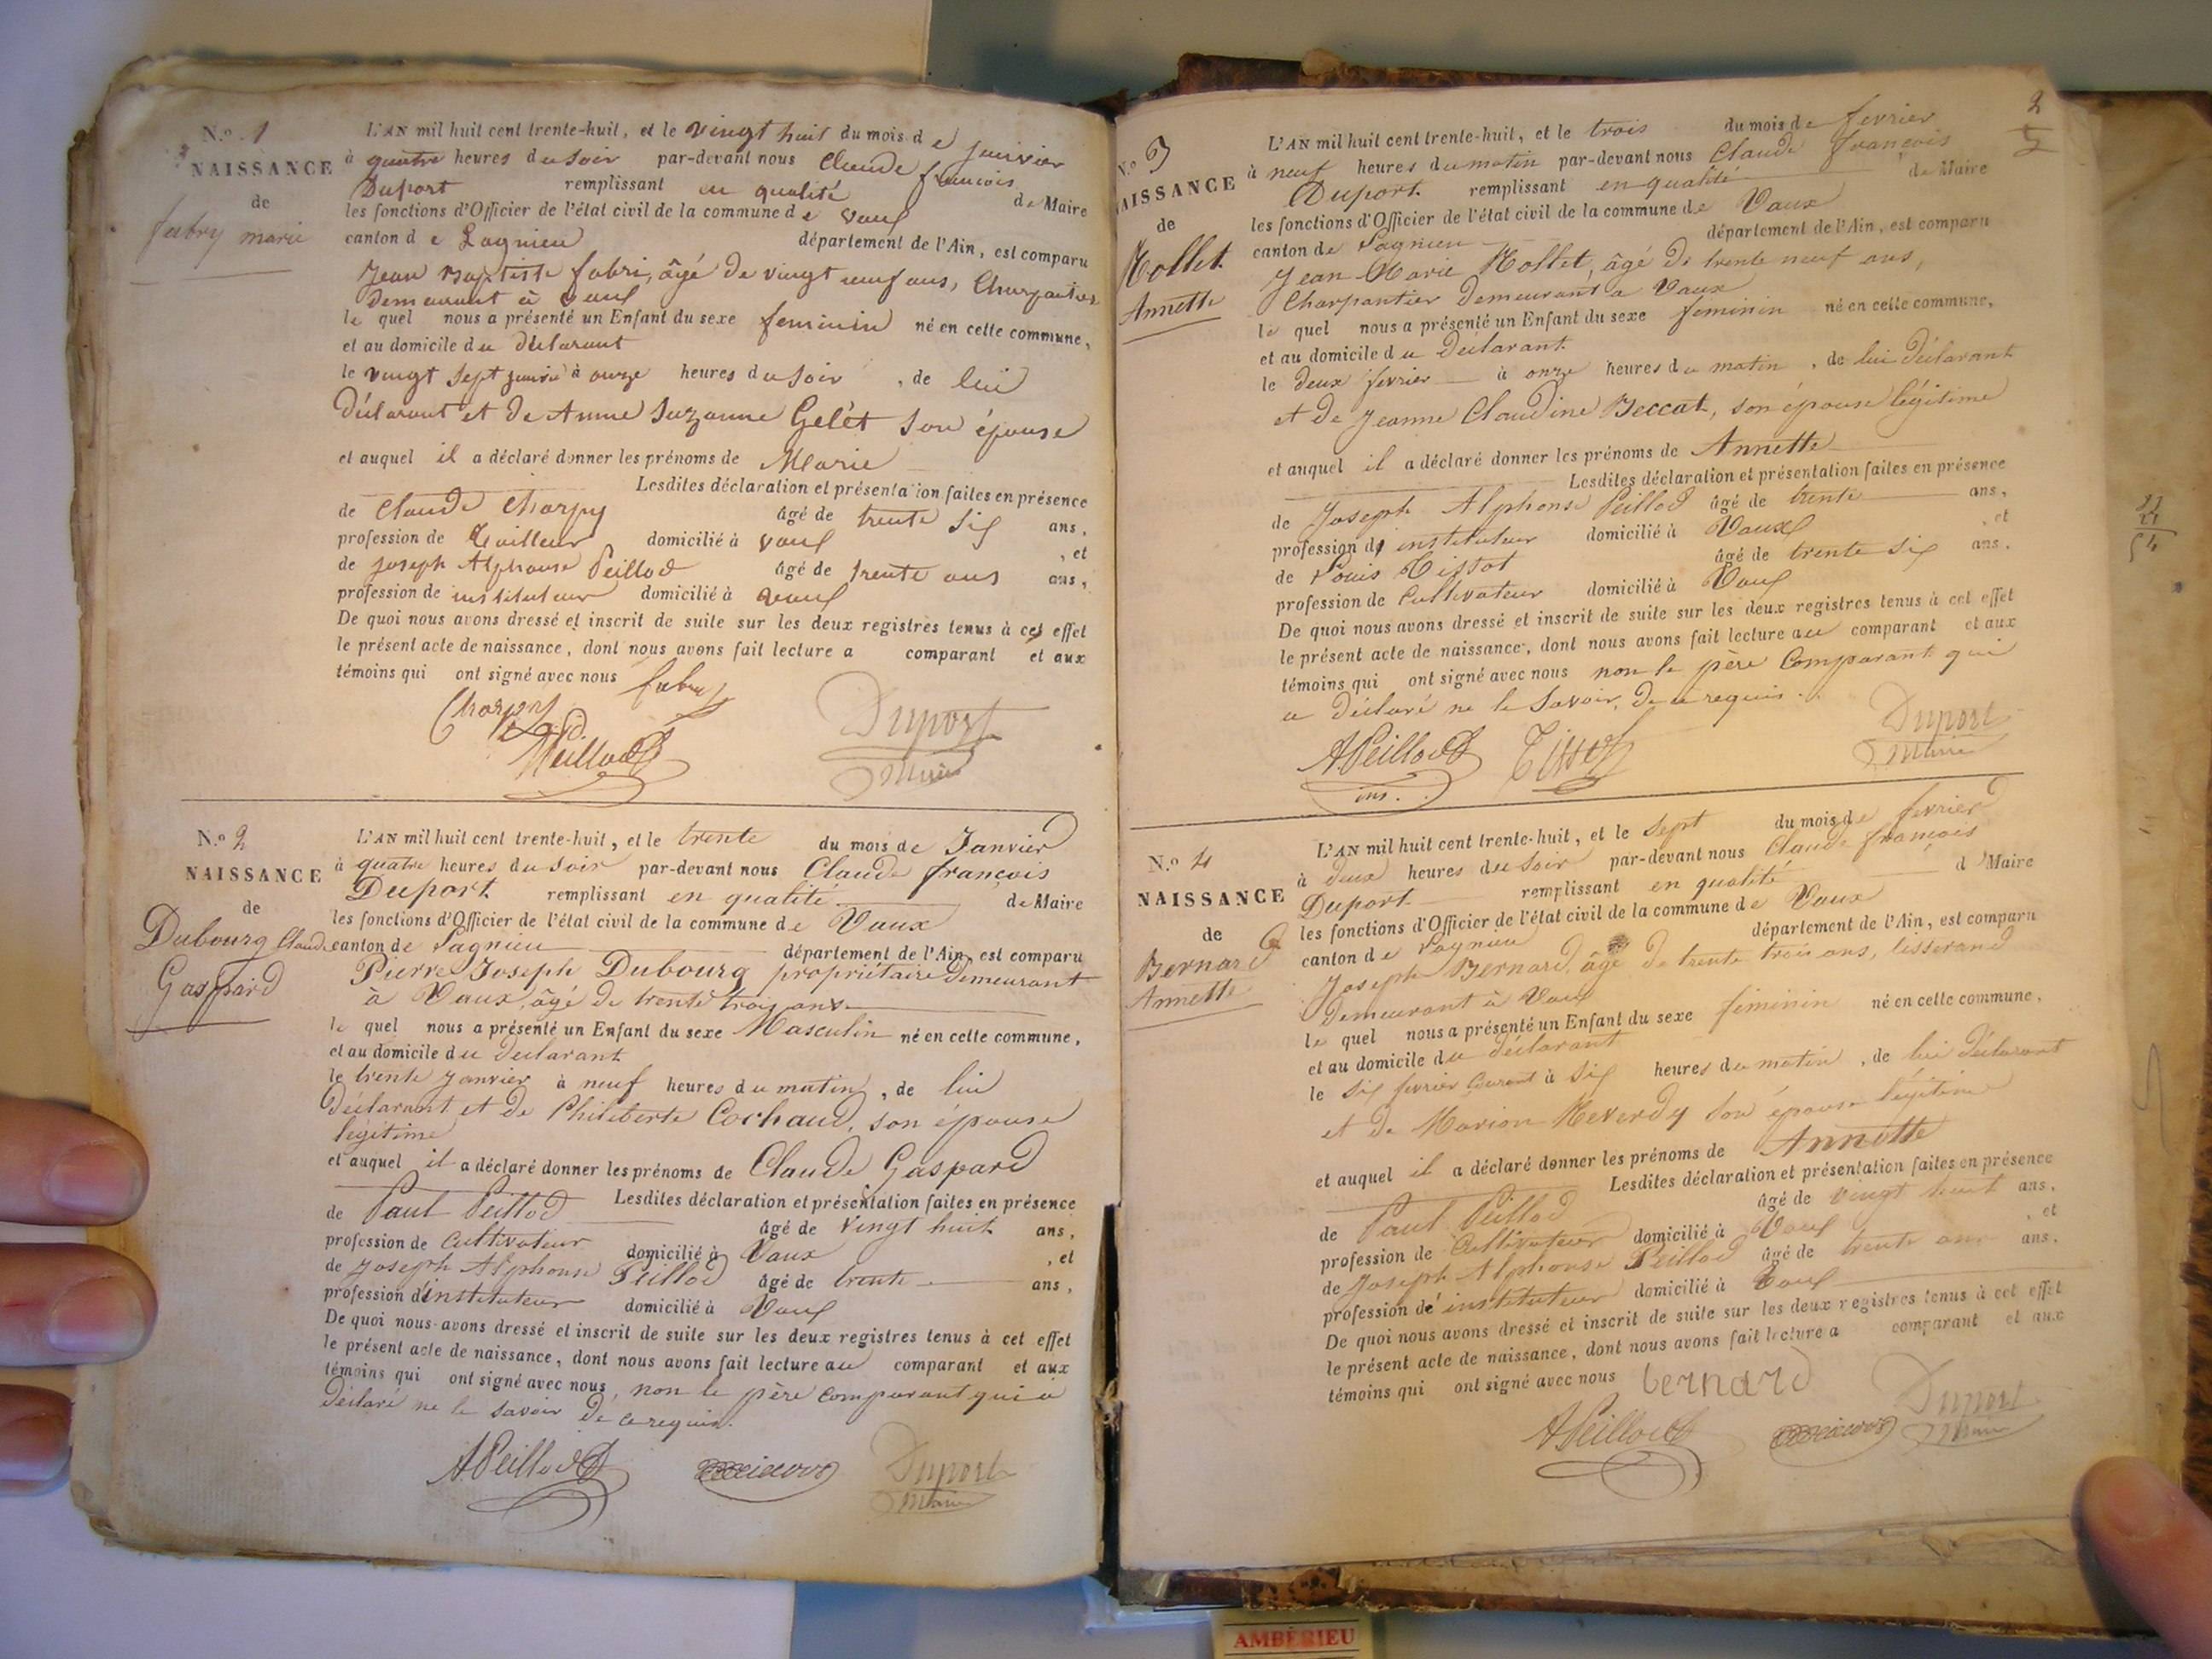 N.o 1
NAISSANCE
de
fabry marie
L'AN mil huit cent trente-huit, et le vingt huit du mois de janvier
à quatre heures du soir par-devant nous Claude françois
Duport remplissant en qualité de Maire
les fonctions d'Officier de l'état civil de la commune de vaux
canton de Lagnieu département de l'Ain, est comparu
Jean Baptiste fabri, âgé de vingt neuf ans, Charpentier
demeurant à vaux
le quel nous a présenté un Enfant du sexe feminin né en cette commune,
et au domicile du déclarant
le vingt sept janvier à onze heures du soir, de lui
déclarant et de Anne Suzanne Gelét son épouse
et auquel il a déclaré donner les prénoms de Marie
Lesdites déclaration et présentation faites en présence
de Claude Charpy âgé de trente six ans,
profession de Tailleur domicilié à vaux, et
de Joseph Alphonse Peillod âgé de trente ans ans,
profession de instituteur domicilié à vaux
De quoi nous avons dressé et inscrit de suite sur les deux registres tenus à cet effet
le présent acte de naissance, dont nous avons fait lecture a comparant et aux
témoins qui ont signé avec nous fabry
Charpy Duport
APeillod Maire
N.o 2
NAISSANCE
de
Dubourg Claude
Gaspard
L'AN mil huit cent trente-huit, et le trente du mois de Janvier
à quatre heures du soir par-devant nous Claude françois
Duport remplissant en qualité de Maire
les fonctions d'Officier de l'état civil de la commune de Vaux
canton de Lagnieu département de l'Ain, est comparu
Pierre Joseph Dubourg propriétaire demeurant
à Vaux, âgé de trente trois ans
le quel nous a présenté un Enfant du sexe Masculin né en cette commune,
et au domicile du déclarant
le trente janvier à neuf heures du matin, de lui
déclarant et de Philiberte Cochaud, son épouse
légitime
et auquel il a déclaré donner les prénoms de Claude Gaspard
Lesdites déclaration et présentation faites en présence
de Paul Peillod âgé de vingt huit ans,
profession de Cultivateur domicilié à Vaux, et
de Joseph Alphonse Peillod âgé de trente ans,
profession d'instituteur domicilié à Vaux
De quoi nous avons dressé et inscrit de suite sur les deux registres tenus à cet effet
le présent acte de naissance, dont nous avons fait lecture au comparant et aux
témoins qui ont signé avec nous, non le père comparant qui a
déclaré ne le savoir de ce requis.
APeillod Duport
Maire
2
5
N.o 3
NAISSANCE
de
Mollet
Annette
L'AN mil huit cent trente-huit, et le trois du mois de fevrier
à neuf heures du matin par-devant nous Claude françois
Duport remplissant en qualité de Maire
les fonctions d'Officier de l'état civil de la commune de Vaux
canton de Lagnieu département de l'Ain, est comparu
Jean Marie Mollet, âgé de trente neuf ans,
Charpantier demeurant a Vaux
le quel nous a présenté un Enfant du sexe feminin né en cette commune,
et au domicile du déclarant
le deux fevrier à onze heures du matin, de lui déclarant
et de Jeanne Claudine Beccat, son épouse légitime
et auquel il a déclaré donner les prénoms de Annette
Lesdites déclaration et présentation faites en présence
de Joseph Alphonse Peillod âgé de trente ans,
profession d'instituteur domicilié à Vaux, et
de Louis Tissot âgé de trente six ans.
profession de Cultivateur domicilié à Vaux
De quoi nous avons dressé et inscrit de suite sur les deux registres tenus à cet effet
le présent acte de naissance, dont nous avons fait lecture au comparant et aux
témoins qui ont signé avec nous non le père Comparant qui
a déclaré ne le savoir, de ce requis.
APeillod Tissot Duport
ins. Maire
N.o 4
NAISSANCE
de
Bernard
Annette
L'AN mil huit cent trente-huit, et le sept du mois de fevrier
à deux heures du soir par-devant nous Claude françois
Duport remplissant en qualité d Maire
les fonctions d'Officier de l'état civil de la commune de Vaux
canton de Lagnieu département de l'Ain, est comparu
Joseph Bernard, âgé de trente trois ans, tisserand
demeurant à Vaux
le quel nous a présenté un Enfant du sexe feminin né en cette commune,
et au domicile du déclarant
le six fevrier Courant à six heures du matin, de lui déclarant
et de Marion Reverdy son épouse légitime
et auquel il a déclaré donner les prénoms de Annette
Lesdites déclaration et présentation faites en présence
de Paul Peillod âgé de vingt huit ans,
profession de Cultivateur domicilié à Vaux, et
de Joseph Alphonse Peillod âgé de trente ans ans.
profession d'instituteur domicilié à Vaux
De quoi nous avons dressé et inscrit de suite sur les deux registres tenus à cet effet
le présent acte de naissance, dont nous avons fait lecture a comparant et aux
témoins qui ont signé avec nous bernard
APeillod Duport
Maire
AMBÉRIEU